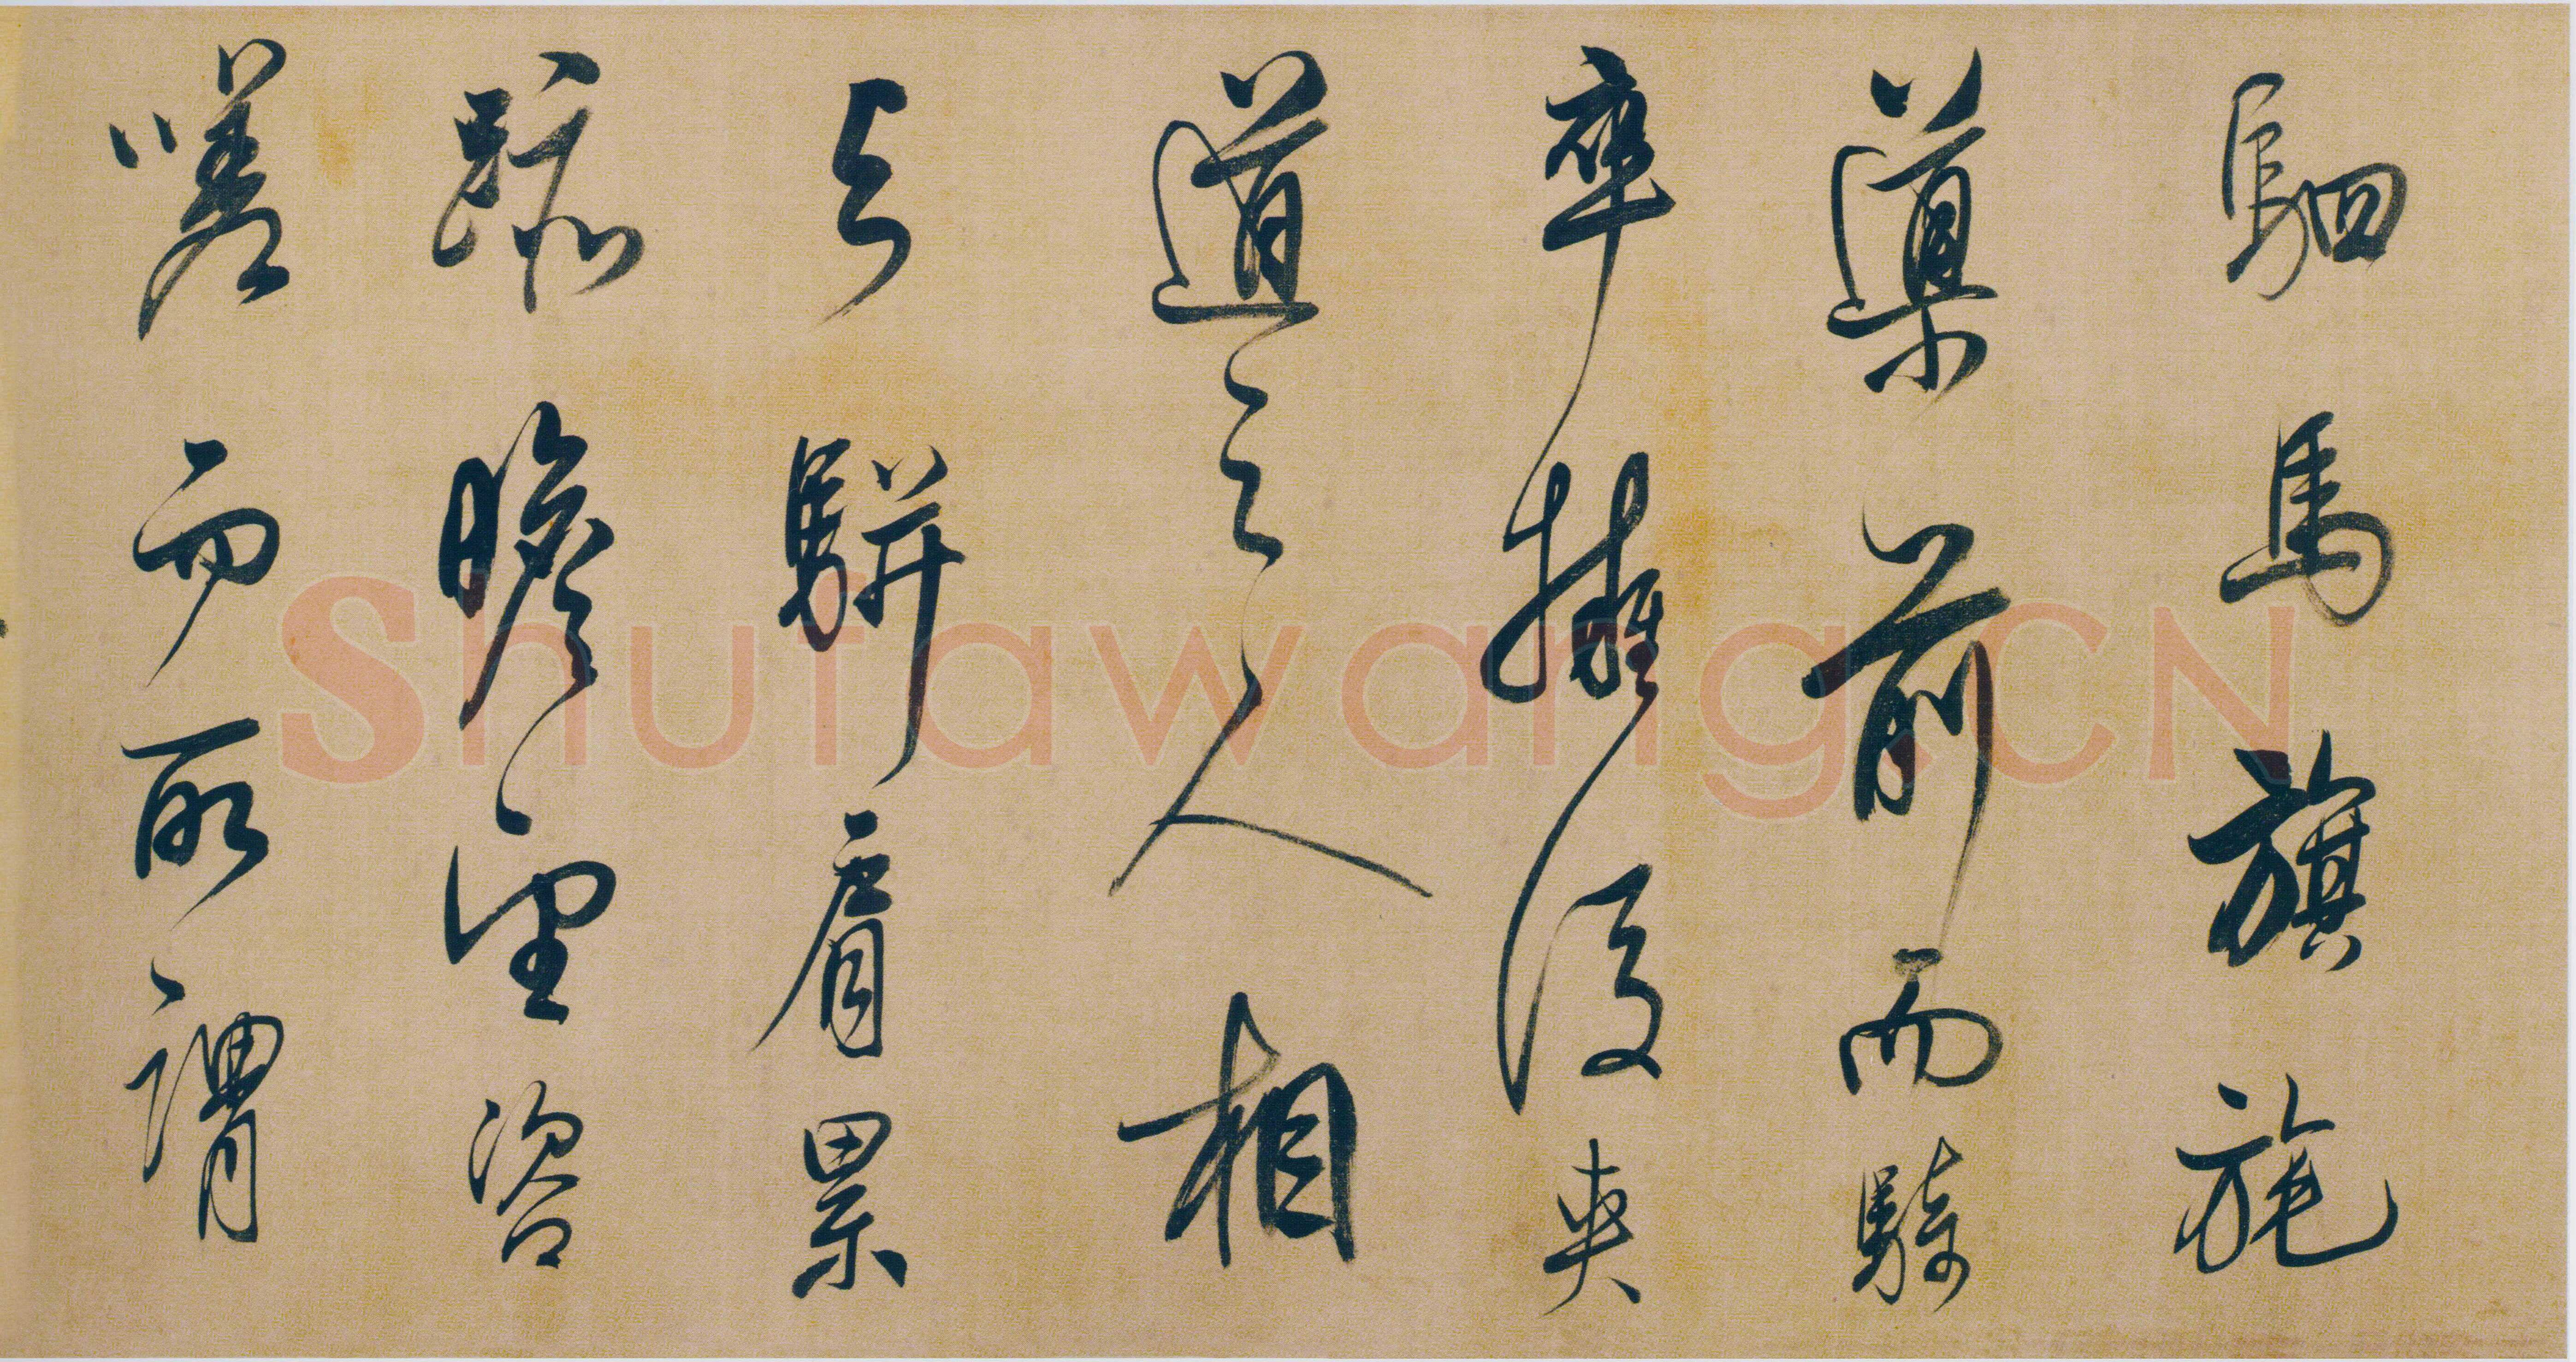 駟馬旗旄
導前而騎
卒擁後夾
道之人相
与駢肩累
跡瞻望咨
嗟而所謂
Shufawang.CN